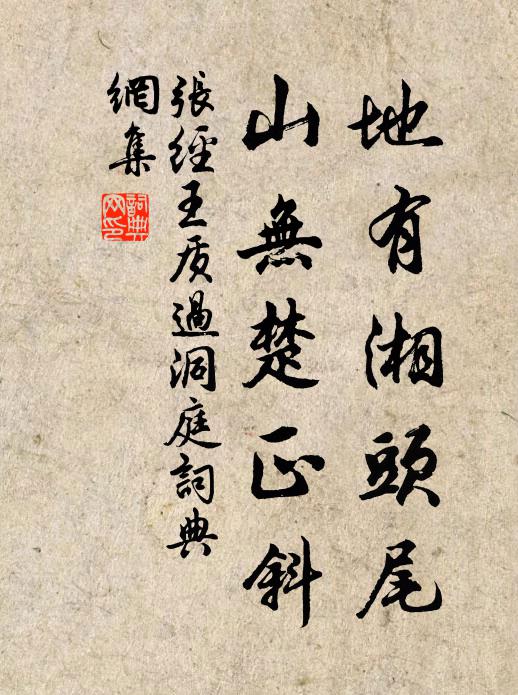 地有湘頭尾
山無楚正斜
張經王质過洞庭詞典
網集
詞典
网印